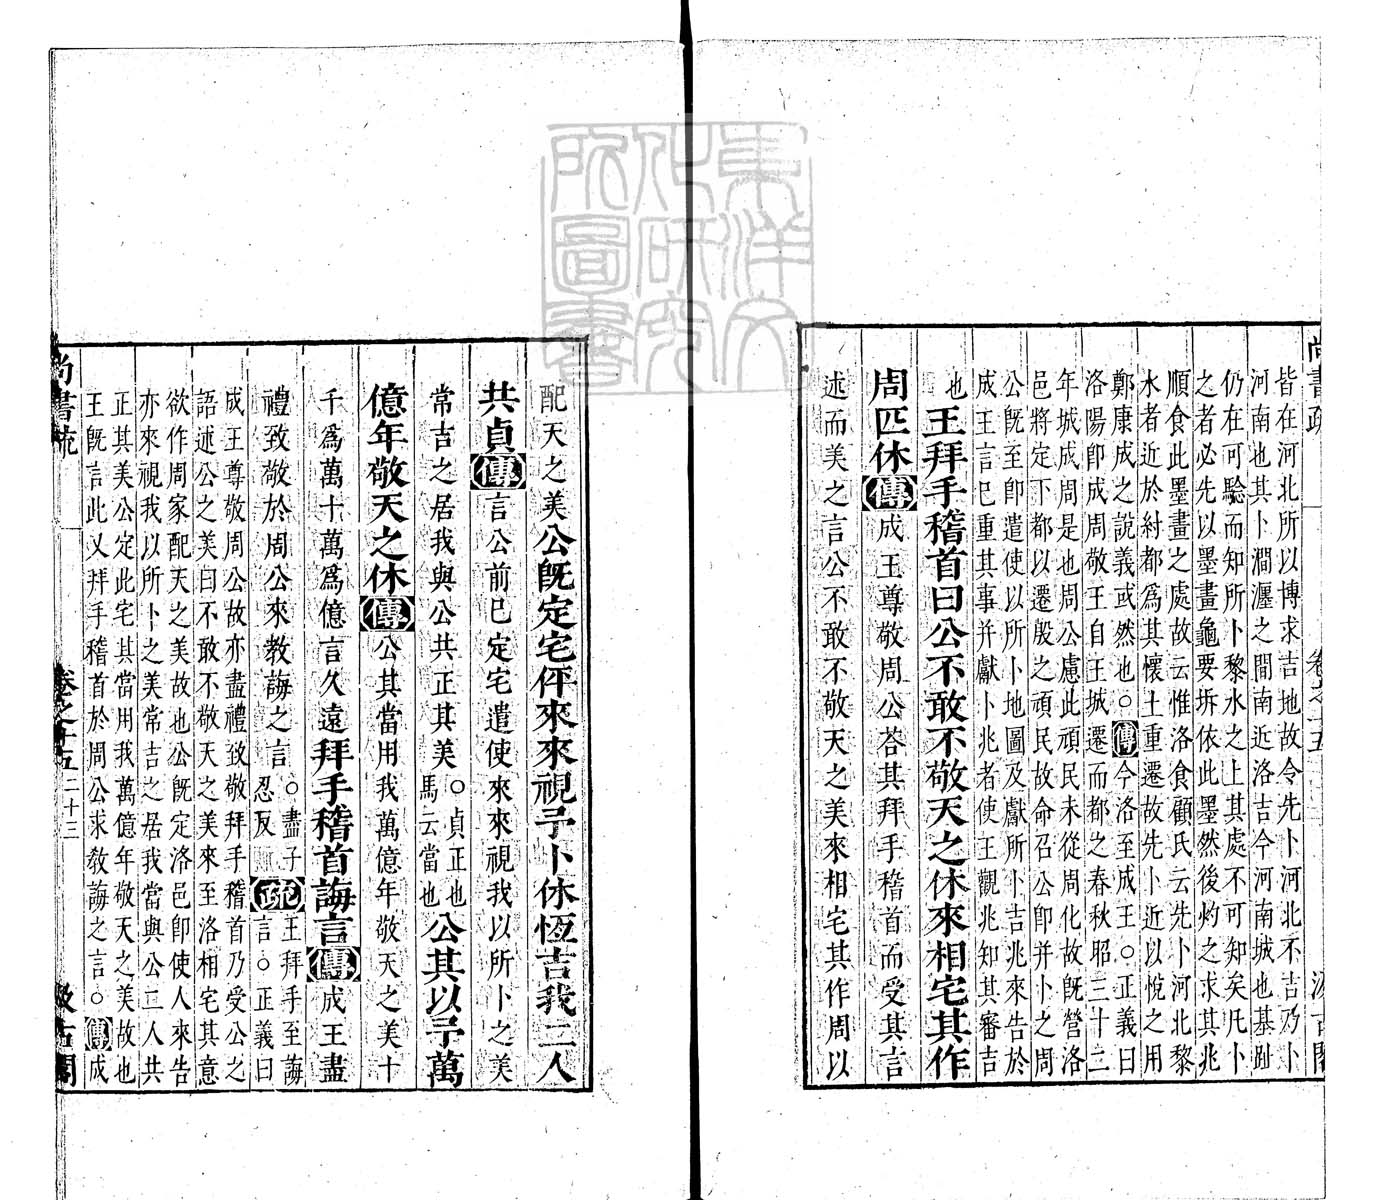 皆在河北所以博求吉地故令先卜河北不吉乃卜
河南也其卜澗瀍之間南近洛吉今河南城也基趾
仍在可驗而知所卜黎水之上其處不可知矣凡卜
之者必先以墨畫龜要坼依此墨然後灼之求其兆
順食此墨畫之處故云惟洛食顧氏云先卜河北黎
水者近於紂都為其懷土重遷故先卜近以悅之用
鄭康成之說義或然也○傳今洛至成王○正義曰
洛陽卽成周敬王自王城遷而都之春秋昭三十二
年城成周是也周公慮此頑民未從周化故旣營洛
邑將定下都以遷殷之頑民故命召公卽并卜之周
公旣至卽遣使以所卜地圖及獻所卜吉兆來告於
成王言巳重其事并獻卜兆者使王觀兆知其審吉
也王拜手稽首曰公不敢不敬天之休來相宅其作
周匹休傳成王尊敬周公荅其拜手稽首而受其言
述而美之言公不敢不敬天之美來相宅其作周以
配天之美公旣定宅伻來來視予卜休恆吉我二人
共貞傳言公前已定宅遣使來來視我以所卜之美
常吉之居我與公共正其美○貞正也馬云當也公其以予萬
億年敬天之休傳公其當用我萬億年敬天之美十
千爲萬十萬爲億言久遠拜手稽首誨言傳成王盡
禮致敬於周公來教誨之言○盡子忍反疏王拜手至誨言○正義曰
成王尊敬周公故亦盡禮致敬拜手稽首乃受公之
語述公之美曰不敢不敬天之美來至洛相宅其意
欲作周家配天之美故也公旣定洛邑卽使人來告
亦來視我以所卜之美常吉之居我當與公二人共
正其美公定此宅其當用我萬億年敬天之美故也
王旣言此又拜手稽首於周公求敎誨之言○傳成
尚書疏 卷之十五 二十三 汲古閣
東洋文化研究所圖書